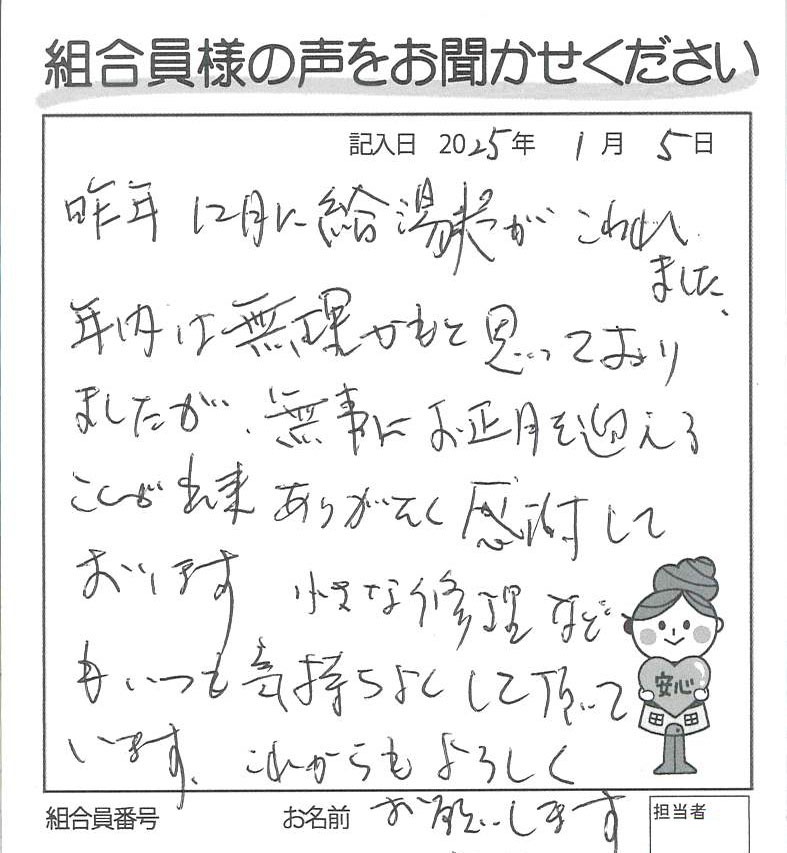 組合員様の声をお聞かせください
記入日 2025年 1月 5日
昨年 12月に給湯器が これれ
ました、
年内は無理かもと思っており
ましたが、無事にお正月を迎える
ことが出来 ありがたく感謝して
おります 小さな修理など
もいつも気持ちよくして頂いて
います、これからもよろしく
お願いします
安心
組合員番号 お名前 担当者